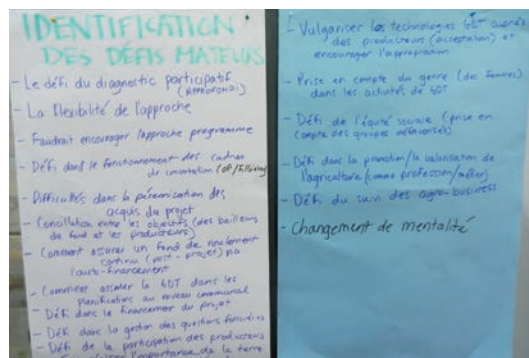 IDENTIFICATION
DES DÉFIS MAJEURS
- Le défi du diagnostic participatif
(APPROFONDI)
- La flexibilité de l'approche
- Faudrait encourager l'approche programme
- Défi dans le fonctionnement des cadres
de concertation
- Difficultés dans la pérennisation des
acquis du projet
- Conciliation entre les objectifs (des bailleurs
de fond et les producteurs)
- Comment assurer un fond de roulement
continu (post-projet) via
l'auto-financement
- Comment assurer la GDT dans les
planifications au niveau communal
- Défi dans le financement du projet
- Défi dans la gestion des questions foncières
- Défi de la participation des producteurs
l'importance de la terre
- Vulgariser les technologies GDT auprès
des producteurs (acceptation) et
encourager l'appropriation
- Prise en compte du genre (des femmes)
dans les activités de GDT
- Défi de l'équité sociale (prise en
compte des groupes défavorisés)
- Défi dans la promotion/la valorisation de
l'agriculture (comme profession/métier)
- Défi du suivi des agro-business
- Changement de mentalité